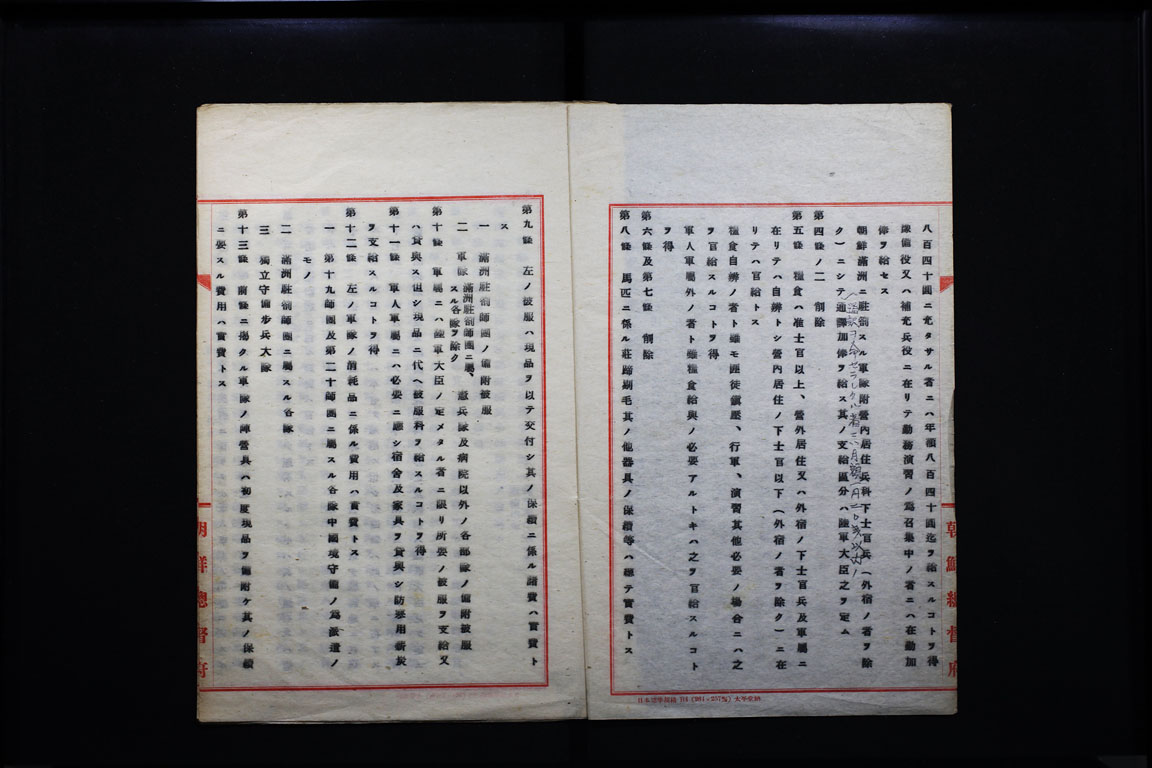 八百四十圓ニ充タサル者ニハ年額八百四十圓迄ヲ給スルコトヲ得
豫備役又ハ補充兵役ニ在リテ勤務演習ノ爲召集中ノ者ニハ在勤加
俸ヲ給セス
朝鮮滿洲ニ駐劄スル軍隊附營内居住兵科下士官兵(外宿ノ者ヲ除
ク)ニシテ通譯加俸ヲ給ス其ノ支給區分ハ陸軍大臣之ヲ定ム
第四條ノ二 削除
第五條 糧食ハ准士官以上、營外居住又ハ外宿ノ下士官兵及軍屬ニ
在リテハ自辨トシ營内居住ノ下士官以下(外宿ノ者ヲ除ク)ニ在
リテハ官給トス
糧食自辨ノ者ト雖モ匪徒鎭壓、行軍、演習其他必要ノ場合ニハ之
ヲ官給スルコトヲ得
軍人軍屬外ノ者ト雖糧食給與ノ必要アルトキハ之ヲ官給スルコト
ヲ得
第六條及第七條 削除
第八條 馬匹ニ係ル裝蹄剔毛其ノ他器具ノ保續等ハ總テ實費トス
朝鮮總督府
第九條 左ノ被服ハ現品ヲ以テ交付シ其ノ保續ニ係ル諸費ハ實費ト
ス
一 滿洲駐劄師團ノ備附被服
二 軍隊(滿洲駐劄師團ニ屬スル各隊ヲ除ク)、憲兵隊及病院以外ノ各部隊ノ備附被服
第十條 軍屬ニハ陸軍大臣ノ定メタル者ニ限リ所要ノ被服ヲ支給又
ハ貸與ス但シ現品ニ代ヘ被服料ヲ給スルコトヲ得
第十一條 軍人軍屬ニハ必要ニ應シ宿舍及家具ヲ貸與シ防寒用薪炭
ヲ支給スルコトヲ得
第十二條 左ノ軍隊ノ消耗品ニ係ル費用ハ實費トス
一 第十九師團及第二十師團ニ屬スル各隊中國境守備ノ爲派遣ノ
モノ
二 滿洲駐劄師團ニ屬スル各隊
三 獨立守備步兵大隊
第十三條 前條ニ揭クル軍隊ノ陣營具ハ初度現品ヲ備附ケ其ノ保續
ニ要スル費用ハ實費トス
朝鮮總督府